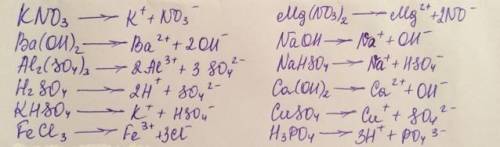 KNO₃ → K⁺ + NO₃⁻
Ba(OH)₂ → Ba²⁺ + 2OH⁻
Al₂(SO₄)₃ → 2Al³⁺ + 3SO₄²⁻
H₂SO₄ → 2H⁺ + SO₄²⁻
KHSO₄ → K⁺ + HSO₄⁻
FeCl₃ → Fe³⁺ + 3Cl⁻
Mg(NO₃)₂ → Mg²⁺ + 2NO⁻
NaOH → Na⁺ + OH⁻
NaHSO₄ → Na⁺ + HSO₄⁻
Ca(OH)₂ → Ca²⁺ + OH⁻
CuSO₄ → Cu⁺ + SO₄²⁻
H₃PO₄ → 3H⁺ + PO₄³⁻